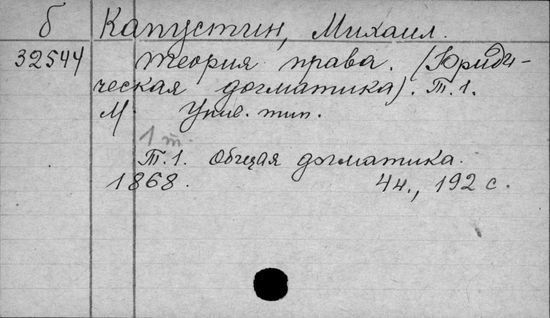 б Капустин, Михаил.
32544 Теория права. (Юриди-
ческая догматика). Т.1.
М. Унив. тип.
1 т.
Т.1. Общая догматика.
1868. 4н., 192 с.